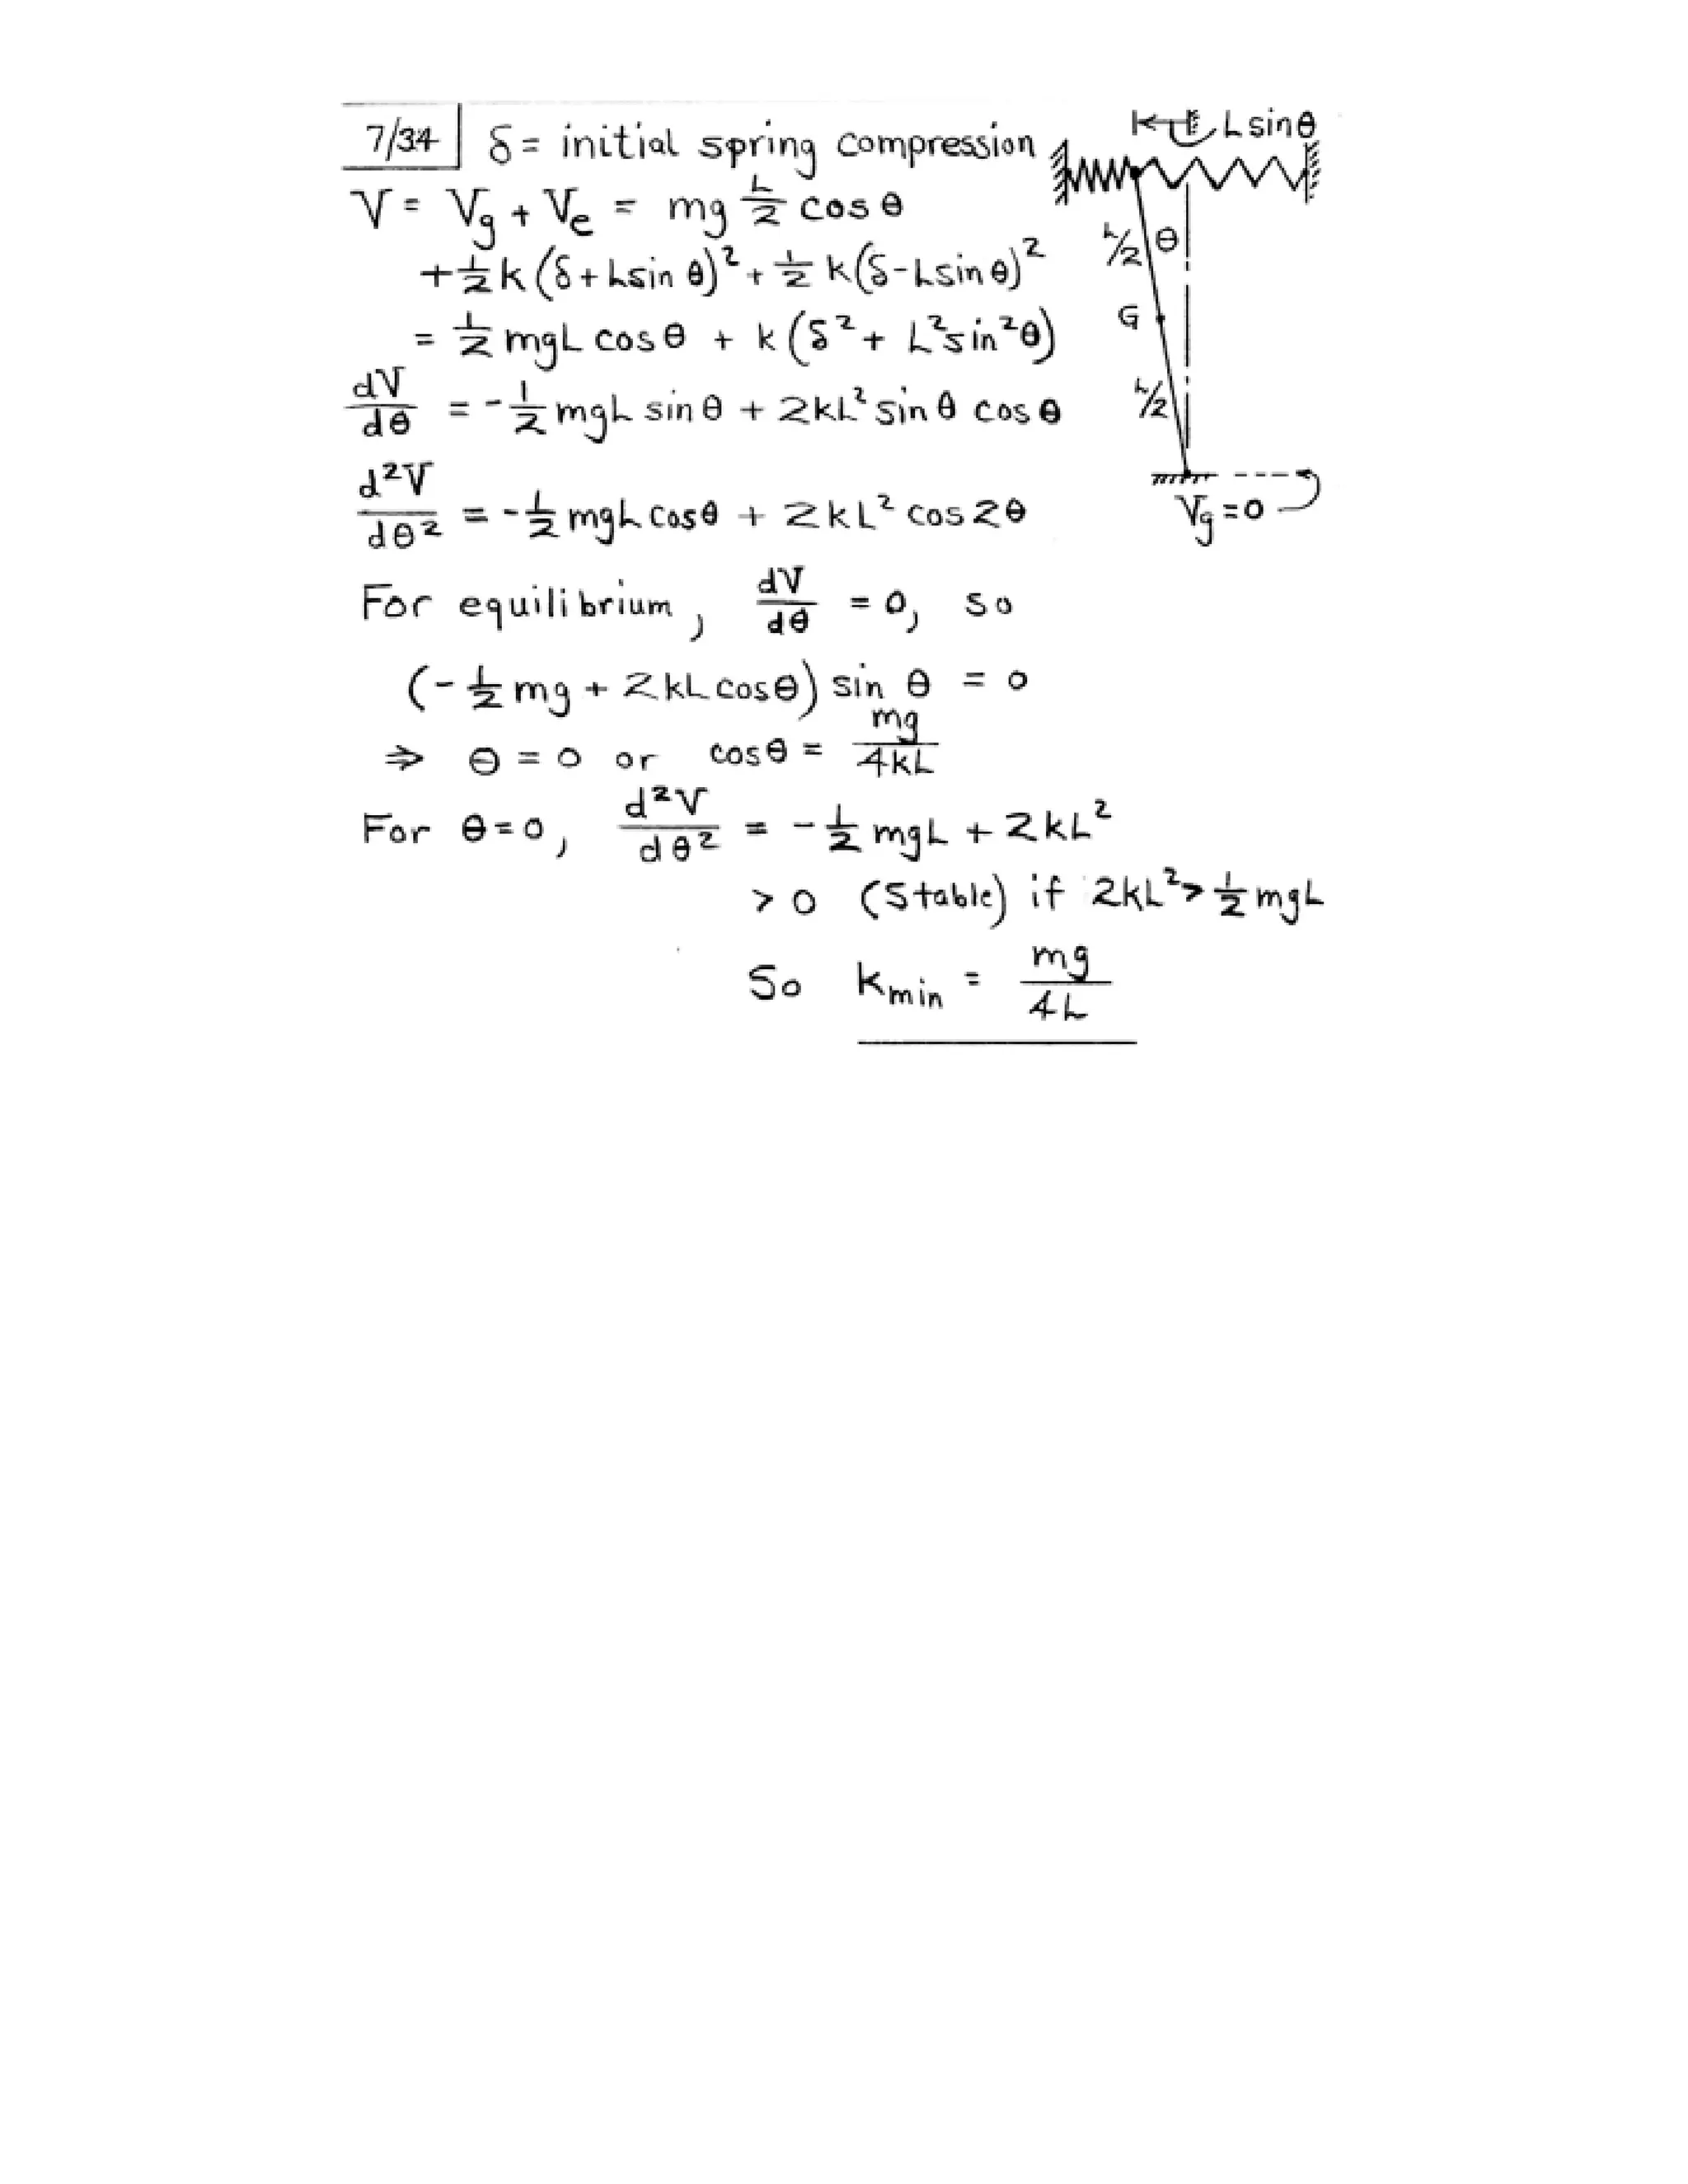 7/34 δ = initial spring compression
V = Vg + Ve = mg L/2 cos θ
+ 1/2 k (δ + L sin θ)² + 1/2 k (δ - L sin θ)²
= 1/2 mgL cos θ + k (δ² + L² sin² θ)
dV/dθ = - 1/2 mgL sin θ + 2kL² sin θ cos θ
d²V/dθ² = - 1/2 mgL cos θ + 2kL² cos 2θ
For equilibrium, dV/dθ = 0, so
(- 1/2 mg + 2kL cos θ) sin θ = 0
⇒ θ = 0 or cos θ = mg/4kL
For θ = 0, d²V/dθ² = - 1/2 mgL + 2kL²
> 0 (Stable) if 2kL² > 1/2 mgL
So kmin = mg/4L
L sin θ
L/2 θ
G
L/2
Vg = 0